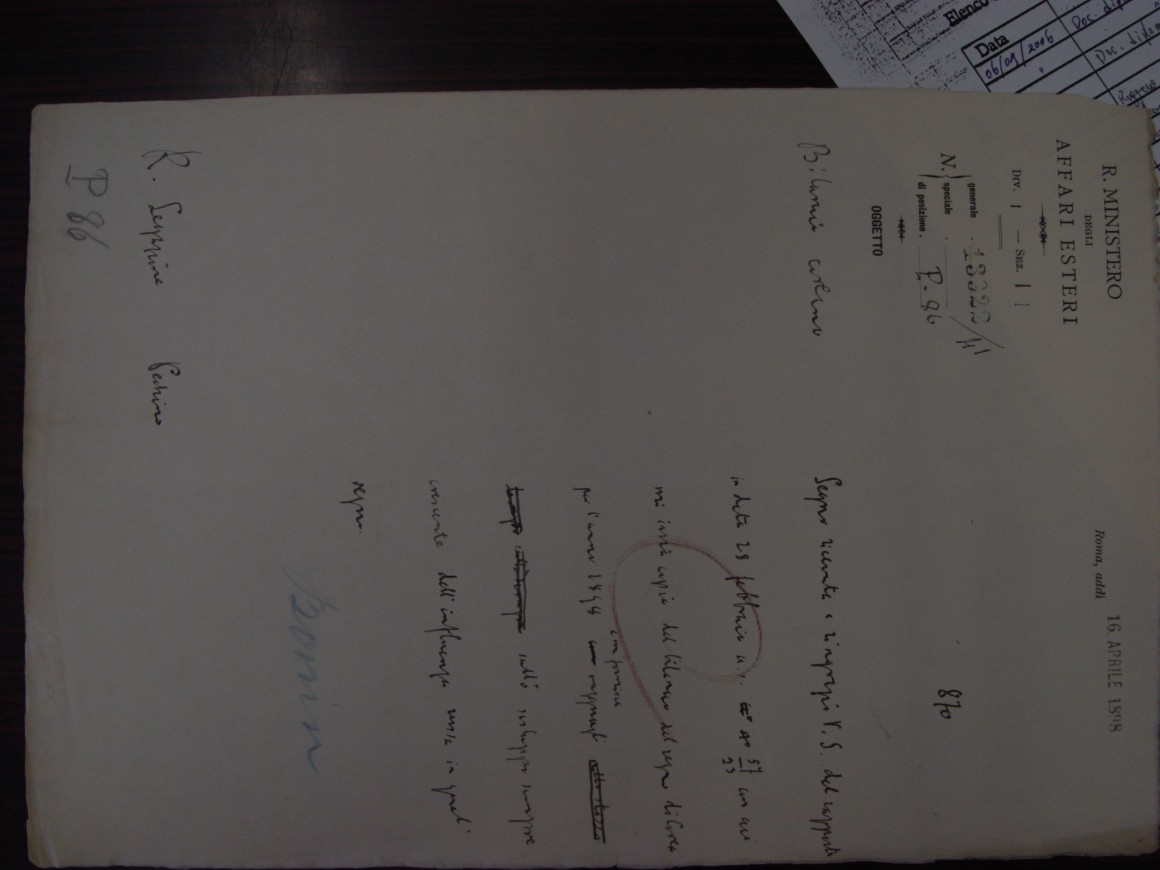 R. MINISTERO
DEGLI
AFFARI ESTERI
Div. I – Sez. I
N. generale . 13322/41
speciale .
di posizione . P. 86
OGGETTO
Bilancio coreano
Roma, addì 16 APRILE 1898
870
Segno ricevuta e ringrazio V. S. del rapporto
in data 28 febbraio u. 57/23 con cui
mi inviò copia del bilancio del regno di Corea
per l'anno 1898 con preziosi ragguagli
sullo sviluppo sempre
crescente dell'influenza russa in quel
regno.
Bonin
R. Legazione Pechino
P 86
Elenco
Data
06/09/2006
Doc. dip
Doc. diplom